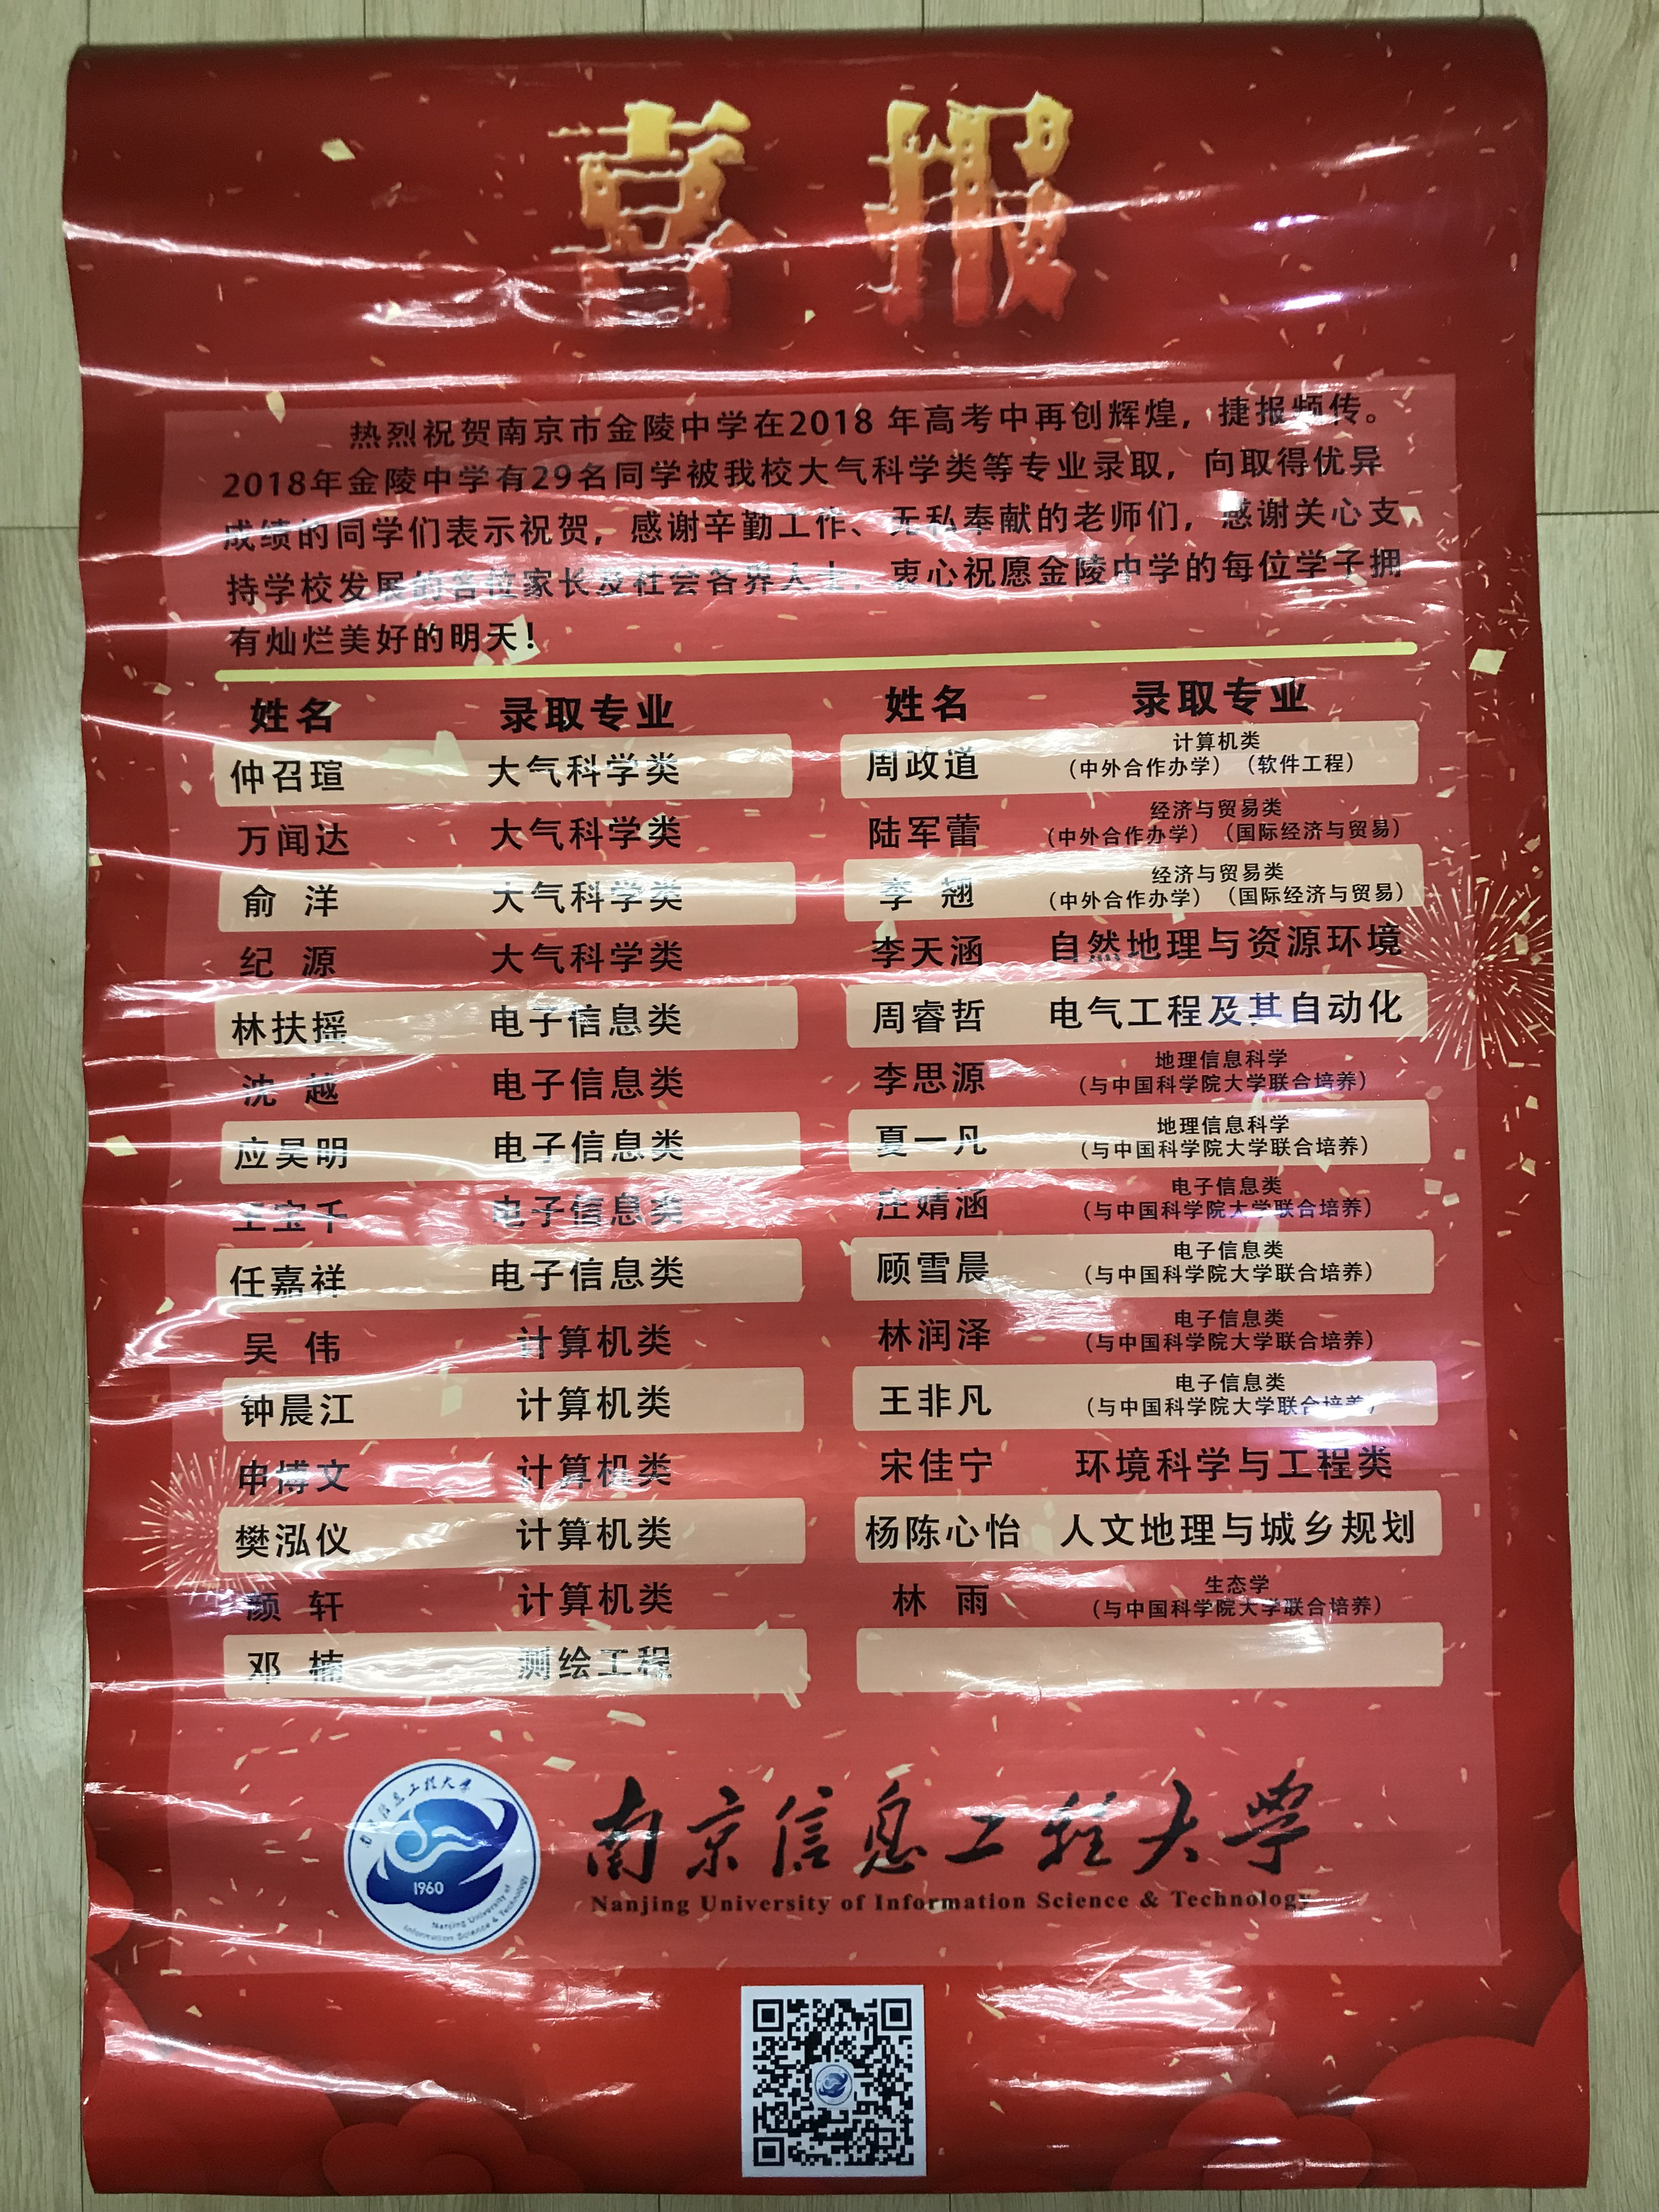 喜报
热烈祝贺南京市金陵中学在2018 年高考中再创辉煌，捷报频传。
2018年金陵中学有29名同学被我校大气科学类等专业录取，向取得优异
成绩的同学们表示祝贺，感谢辛勤工作、无私奉献的老师们，感谢关心支
持学校发展的各位家长及社会各界人士，衷心祝愿金陵中学的每位学子拥
有灿烂美好的明天！
姓名 录取专业
仲召瑄 大气科学类
万闻达 大气科学类
俞 洋 大气科学类
纪 源 大气科学类
林扶摇 电子信息类
沈 越 电子信息类
应昊明 电子信息类
王宝千 电子信息类
任嘉祥 电子信息类
吴 伟 计算机类
钟晨江 计算机类
申博文 计算机类
樊泓仪 计算机类
颜 轩 计算机类
邓 楠 测绘工程
姓名 录取专业
周政道 计算机类
（中外合作办学）（软件工程）
陆军蕾 经济与贸易类
（中外合作办学）（国际经济与贸易）
李 翘 经济与贸易类
（中外合作办学）（国际经济与贸易）
李天涵 自然地理与资源环境
周睿哲 电气工程及其自动化
李思源 地理信息科学
（与中国科学院大学联合培养）
夏一凡 地理信息科学
（与中国科学院大学联合培养）
庄婧涵 电子信息类
（与中国科学院大学联合培养）
顾雪晨 电子信息类
（与中国科学院大学联合培养）
林润泽 电子信息类
（与中国科学院大学联合培养）
王非凡 电子信息类
（与中国科学院大学联合培养）
宋佳宁 环境科学与工程类
杨陈心怡 人文地理与城乡规划
林 雨 生态学
（与中国科学院大学联合培养）
南京信息工程大学
1960
Nanjing University of
Information Science & Technology
南京信息工程大学
Nanjing University of Information Science & Technology